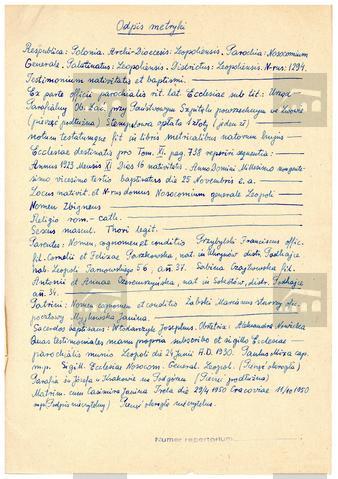 Odpis metryki
Respublica: Polonia. Archi-Dioecesis: Leopoliensis. Parochia: Nosocomium
Generale. Palatinatus: Leopoliensis. Districtus: Leopoliensis. N-rus: 1294.
Testimonium nativitatis et baptismi.
Ex parte officii parochialis rit. lat. Ecclesiae sub tit: Urząd
Parafialny Ob. Łac. przy Państwowym Szpitalu powszechnym we Lwowie
(pieczęć podłużna) Stemplowa opłata 1 złoty (jeden zł)
notum testatumque fit in libris metricalibus natorum hujus
Ecclesiae destinatis pro Tom. XI. pag. 738 reperiri sequentia:
Annus 1923 Mensis XI Dies 16 nativitatis. Anno Domini Millesimo nongente-
simo vicesimo tertio baptisatus die 25 Novembris e.a.
Locus nativit. et N-rus domus Nosocomium generale Leopoli
Nomen Zbigneus
Religio rom.-cath.
Sexus mascul. Thori legit.
Parentes: Nomen, cognomen et conditio Przybylski Franciscus offic.
fil. Cornelii et Felixae Paszkowska, nat. in distr. Podhajce
hab. Leopoli Tarnowskiego 56, an. 37. Sabina fil.
Antonii et Annae, nat. in distr. Podhajce
an. 34.
Patrini: Nomen cognomen et conditio Żabski Marianus starszy ofic.
pocztowy Janina.
Sacerdos baptisans: Włodarczyk Josephus. Obstetrix: Aleksandra Nowicka
Quas testimoniales manu propria subscribo et sigillo Ecclesiae
parochialis munio Leopoli die 24 Junii A.D. 1930. Paulus Miza cap.
mp. Sigill. Ecclesiae Nosocom. General. Leopol. (Pieczęć okrągła)
Parafia św Józefa w Krakowie na Podgórzu (Pieczęć podłużna)
Matrim. cum Casimira Janina Treta die 29/4 1950 Cracoviae 11/10 1950
mp. Podpis nieczytelny) Pieczęć okrągła nieczytelna.
Numer repertorium